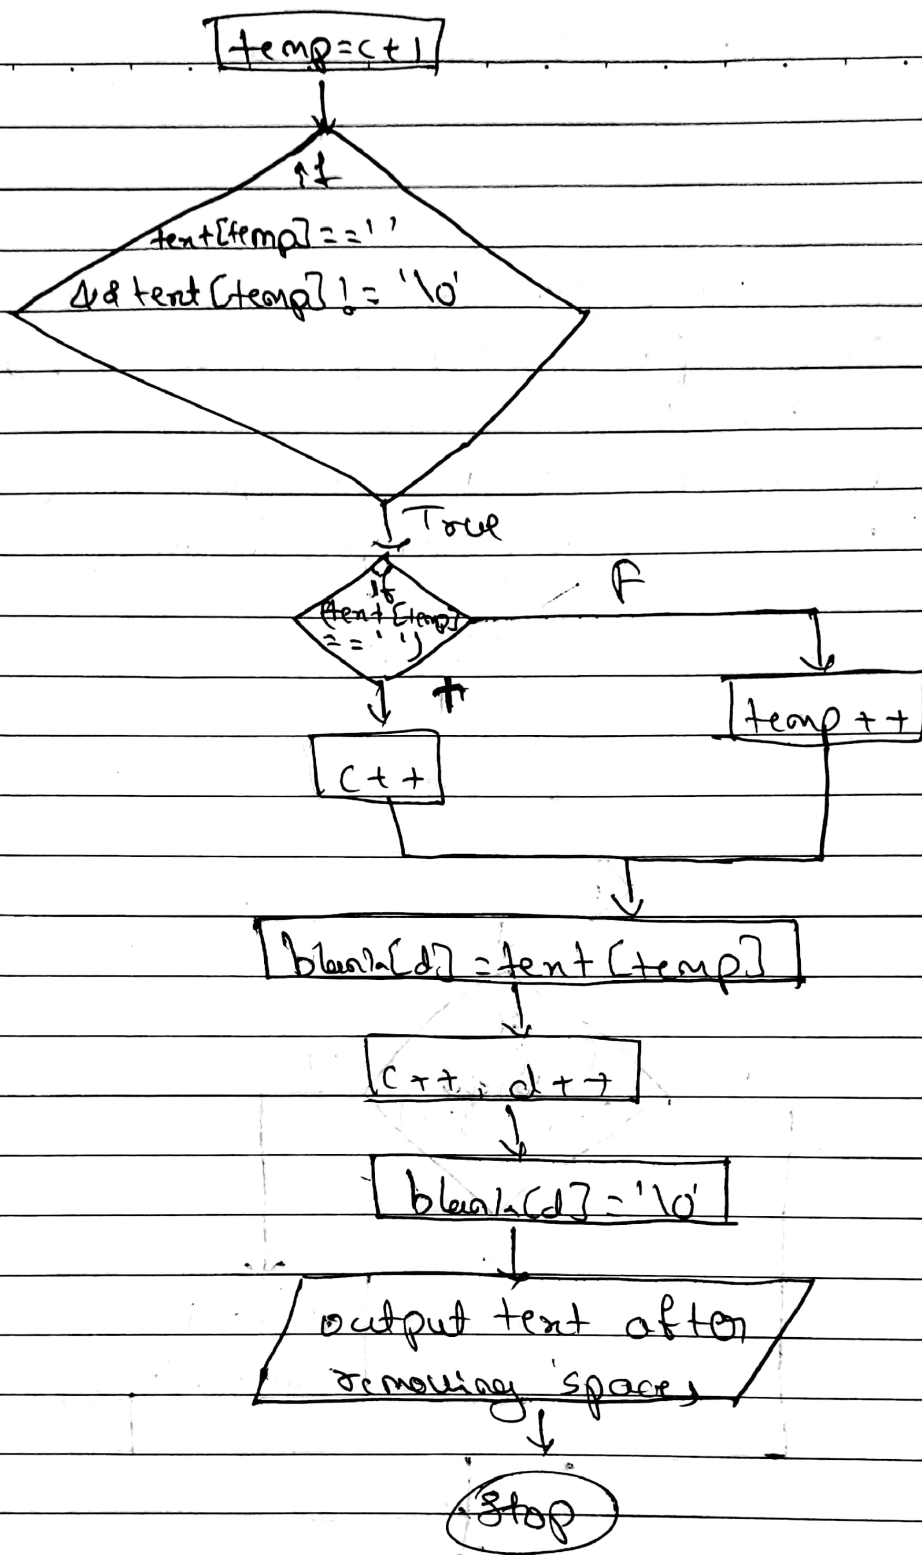 temp=c+1
if
text[temp]==' '
&& text[temp]!='\0'
True
if
(text[temp]
==' ')
F
T
temp++
c++
blank[d]=text[temp]
c++; d++
blank[d]='\0'
output text after
removing spaces
Stop